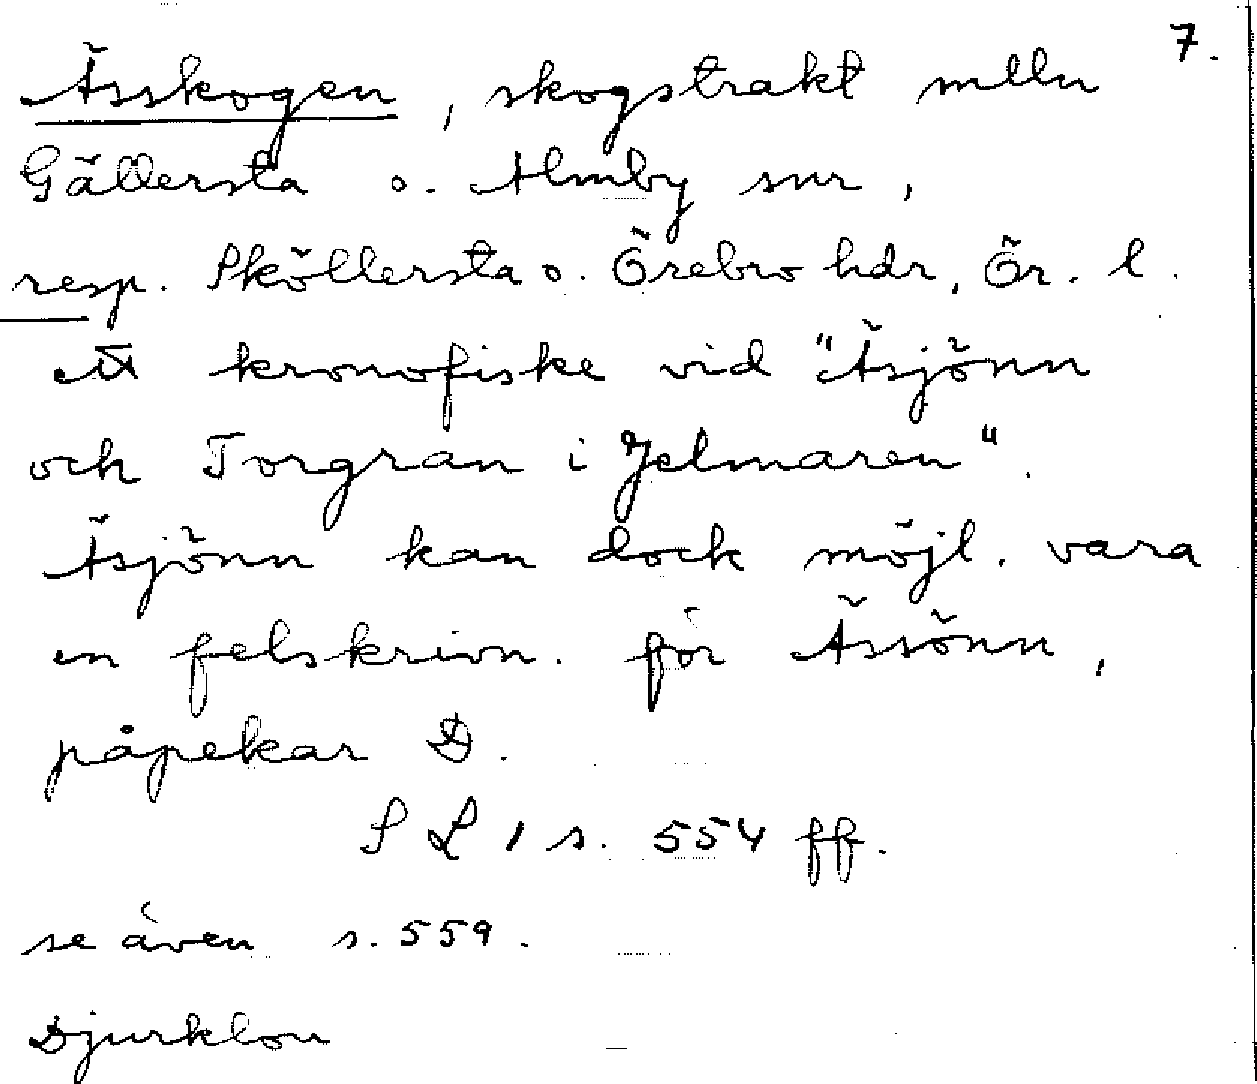 7.
Ässkogen, skogstrakt mlln
Gällersta o. Almby snr,
resp. Sköllersta o. Örebro hdr, Ör. l.
ett kronofiske vid "Äsjönn
och Torgran i Jelmaren".
Äsjönn kan dock möjl. vara
en felskrivn. för Ässönn,
påpekar D.
S L 1 s. 554 ff.
se även s. 559.
Djurklou